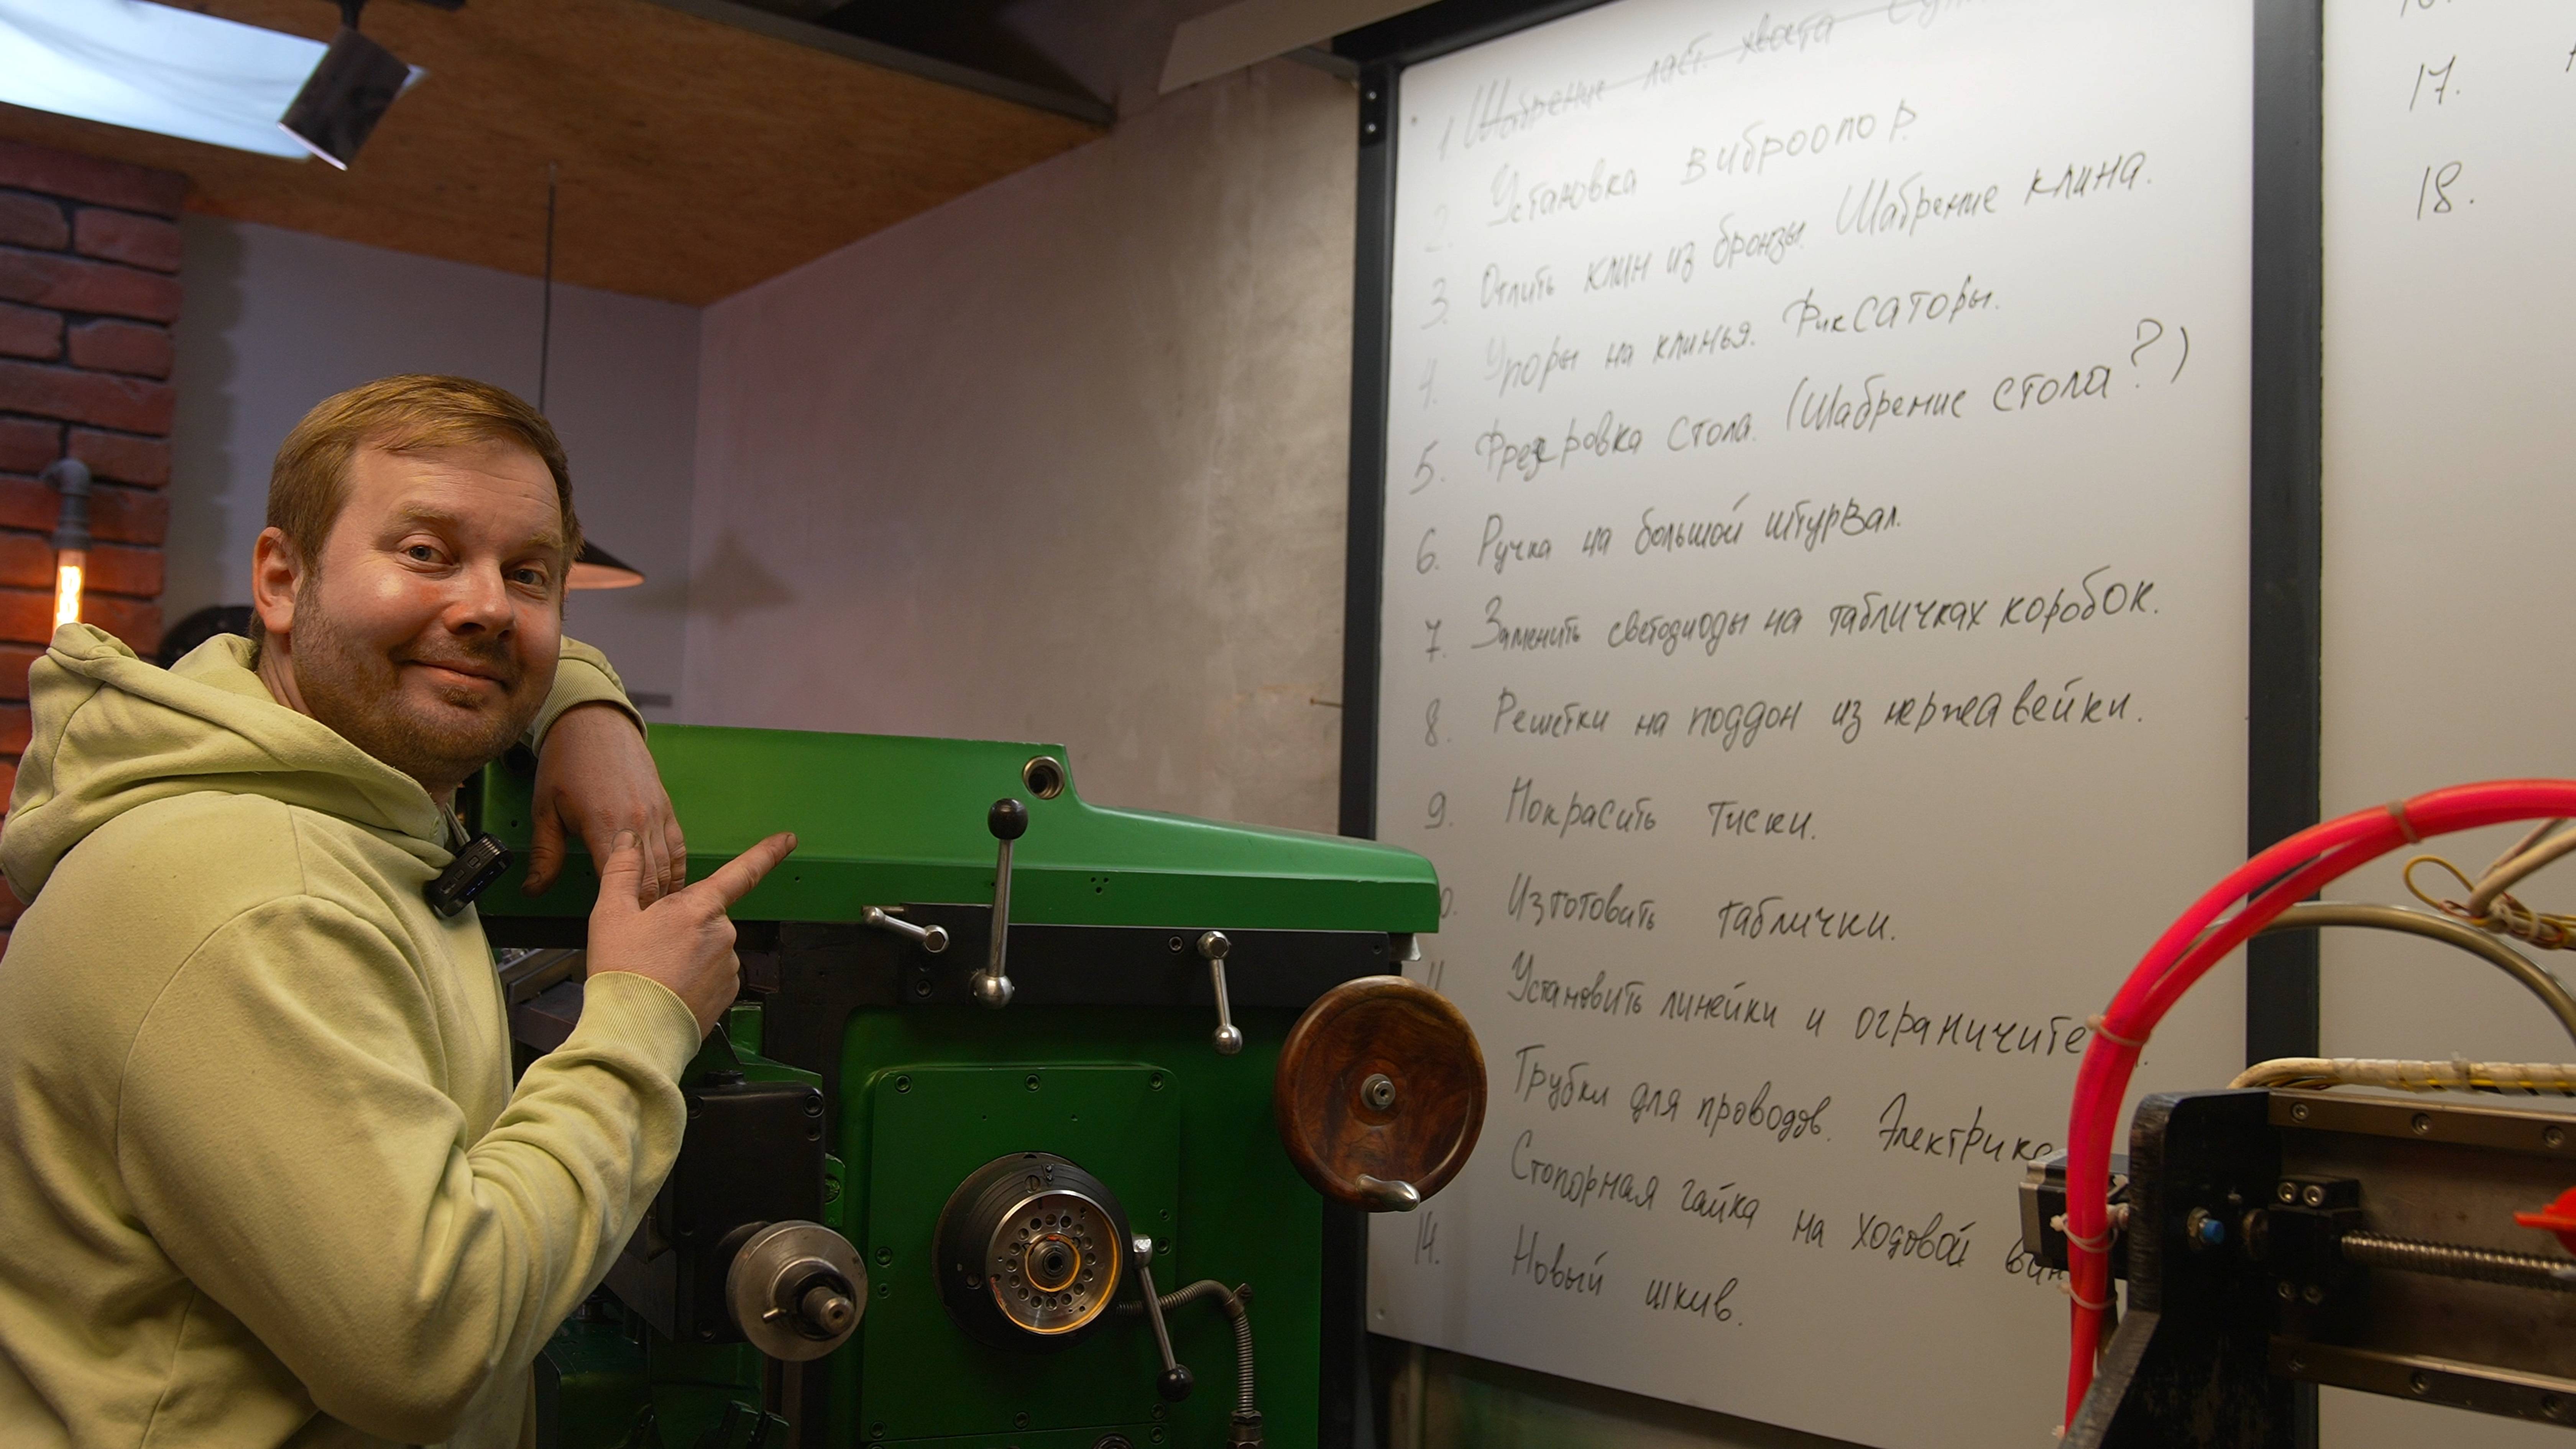 1 Шабрение ласт. хвоста
2. Установка виброопор.
3. Отлить клин из бронзы. Шабрение клина.
4. Упоры на клинья. Фиксаторы.
5. Фрезеровка стола. (Шабрение стола?)
6. Ручка на большой штурвал.
7. Заменить светодиоды на табличках коробок.
8. Решетки на поддон из нержавейки.
9. Покрасить тиски.
0. Изготовить таблички.
11 Установить линейки и ограничите
Трубки для проводов. Электрика
Стопорная гайка на ходовой вин
14. Новый шкив.
17.
18.